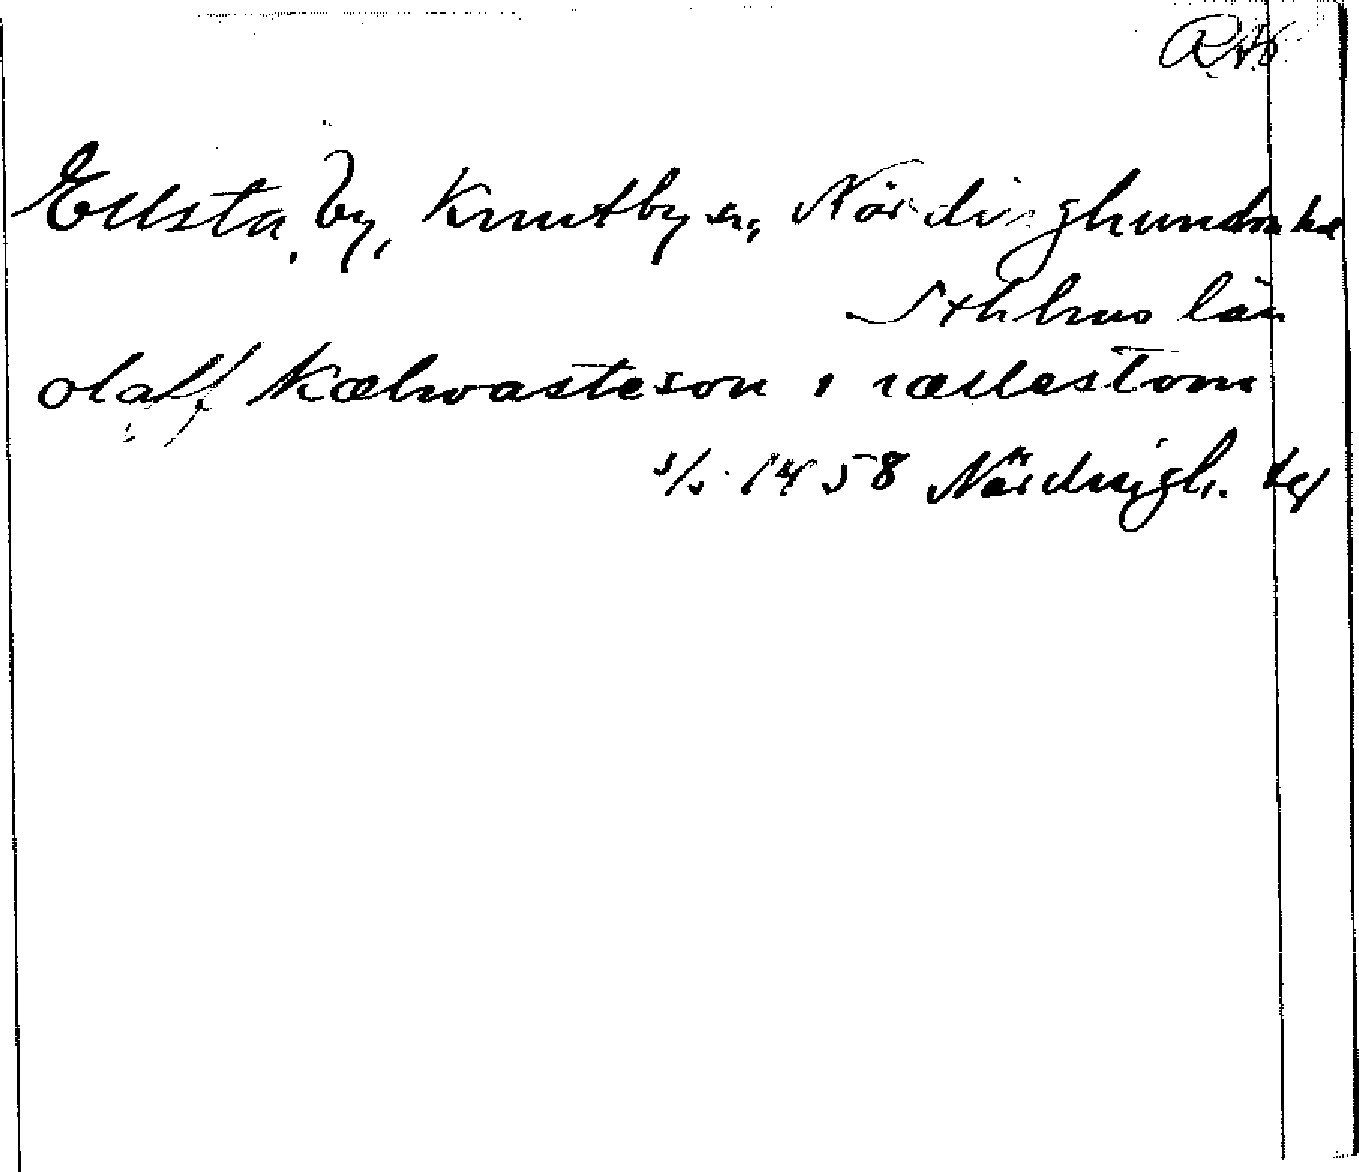 RAK
Ellsta, by, Knutby sn, Närdinghundra hd
Sthlms län
olaff Kælwasteson i iællestom
5/5 1458 Närdingh. tg